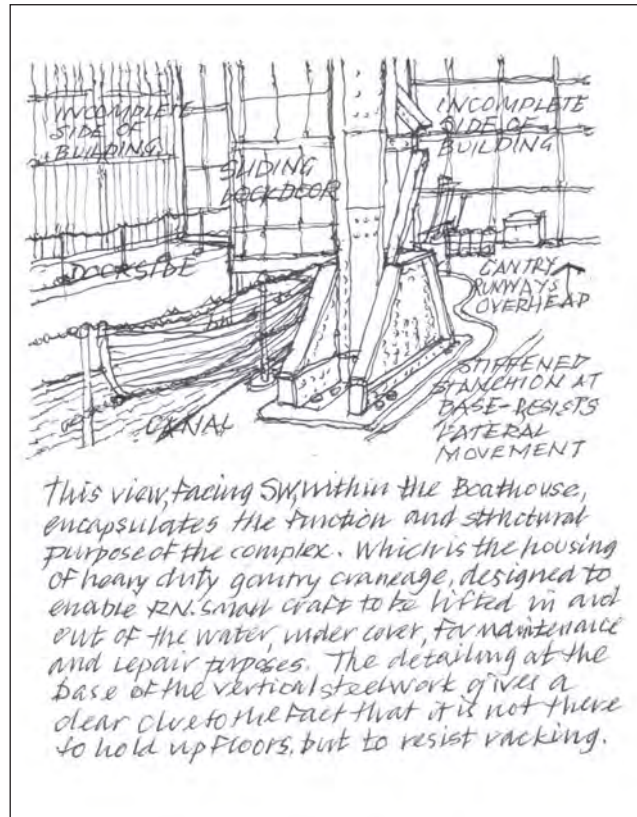 INCOMPLETE
SIDE OF
BUILDING
SLIDING
LOCKDOOR
INCOMPLETE
SIDE OF
BUILDING
DOCKSIDE
GANTRY
RUNWAYS
OVERHEAD
CANAL
STIFFENED
STANCHION AT
BASE-RESISTS
LATERAL
MOVEMENT
This view, facing SW, within the Boathouse,
encapsulates the function and structural
purpose of the complex. Which is the housing
of heavy duty gantry craneage, designed to
enable RN. small craft to be lifted in and
out of the water, under cover, for maintenance
and repair purposes. The detailing at the
base of the vertical steelwork gives a
clear clue to the fact that it is not there
to hold up floors, but to resist racking.